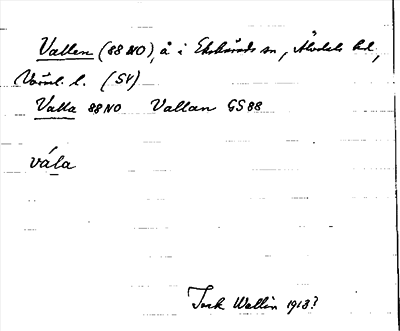 Vallen (88 NO), å i Ekshärads sn, Älvdals hd,
Värml. l. (SV)
Valla 88 NO Vallan GS 88
våla
Tork Wallin 1913?